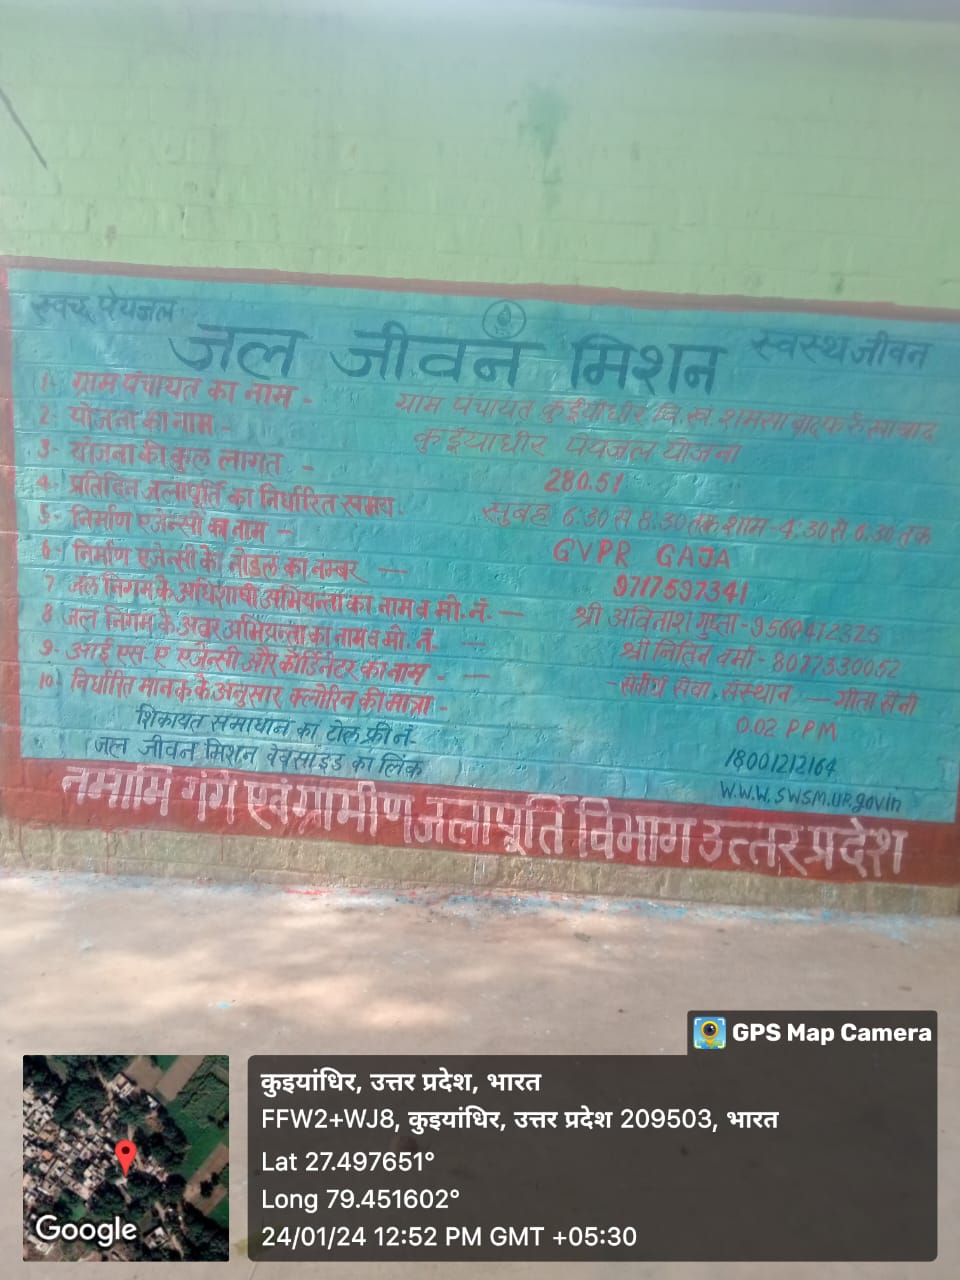 स्वच्छ पेयजल
जल जीवन मिशन
स्वस्थ जीवन
1- ग्राम पंचायत का नाम - ग्राम पंचायत कुईयाँधीर वि.ख. शमसाबाद फर्रुखाबाद
2- योजना का नाम - कुईयाधीर पेयजल योजना
3- योजना की कुल लागत - 280.51
4- प्रतिदिन जलापूर्ति का निर्धारित समय. सुबह 6.30 से 8.30 तक शाम-4.30 से 6.30 तक
5- निर्माण एजेन्सी का नाम - GVPR GAJA
6- निर्माण एजेन्सी के नोडल का नम्बर — 9717597341
7 जल निगम के अधिशाषी अभियन्ता का नाम व मो. नं. — श्री अविनाश गुप्ता -
8 जल निगम के अवर अभियन्ता का नाम व मो. नं. — श्री नितिन वर्मा -
9- आई एस. ए एजेन्सी और कोर्डिनेटर का नाम - — सेवा संस्थान — गीता सैनी
10 निर्धारित मानक के अनुसार क्लोरिन की मात्रा - 0.02 PPM
शिकायत समाधान का टोल फ्री नं- 18001212164
जल जीवन मिशन वेवसाइड का लिंक W.W.W.SWSM.UP.gov.in
नमामि गंगे एवं ग्रामीण जलापूर्ति विभाग उत्तर प्रदेश
GPS Map Camera
कुइयांधिर, उत्तर प्रदेश, भारत
FFW2+WJ8, कुइयांधिर, उत्तर प्रदेश 209503, भारत
Lat 27.497651°
Long 79.451602°
24/01/24 12:52 PM GMT +05:30
Google